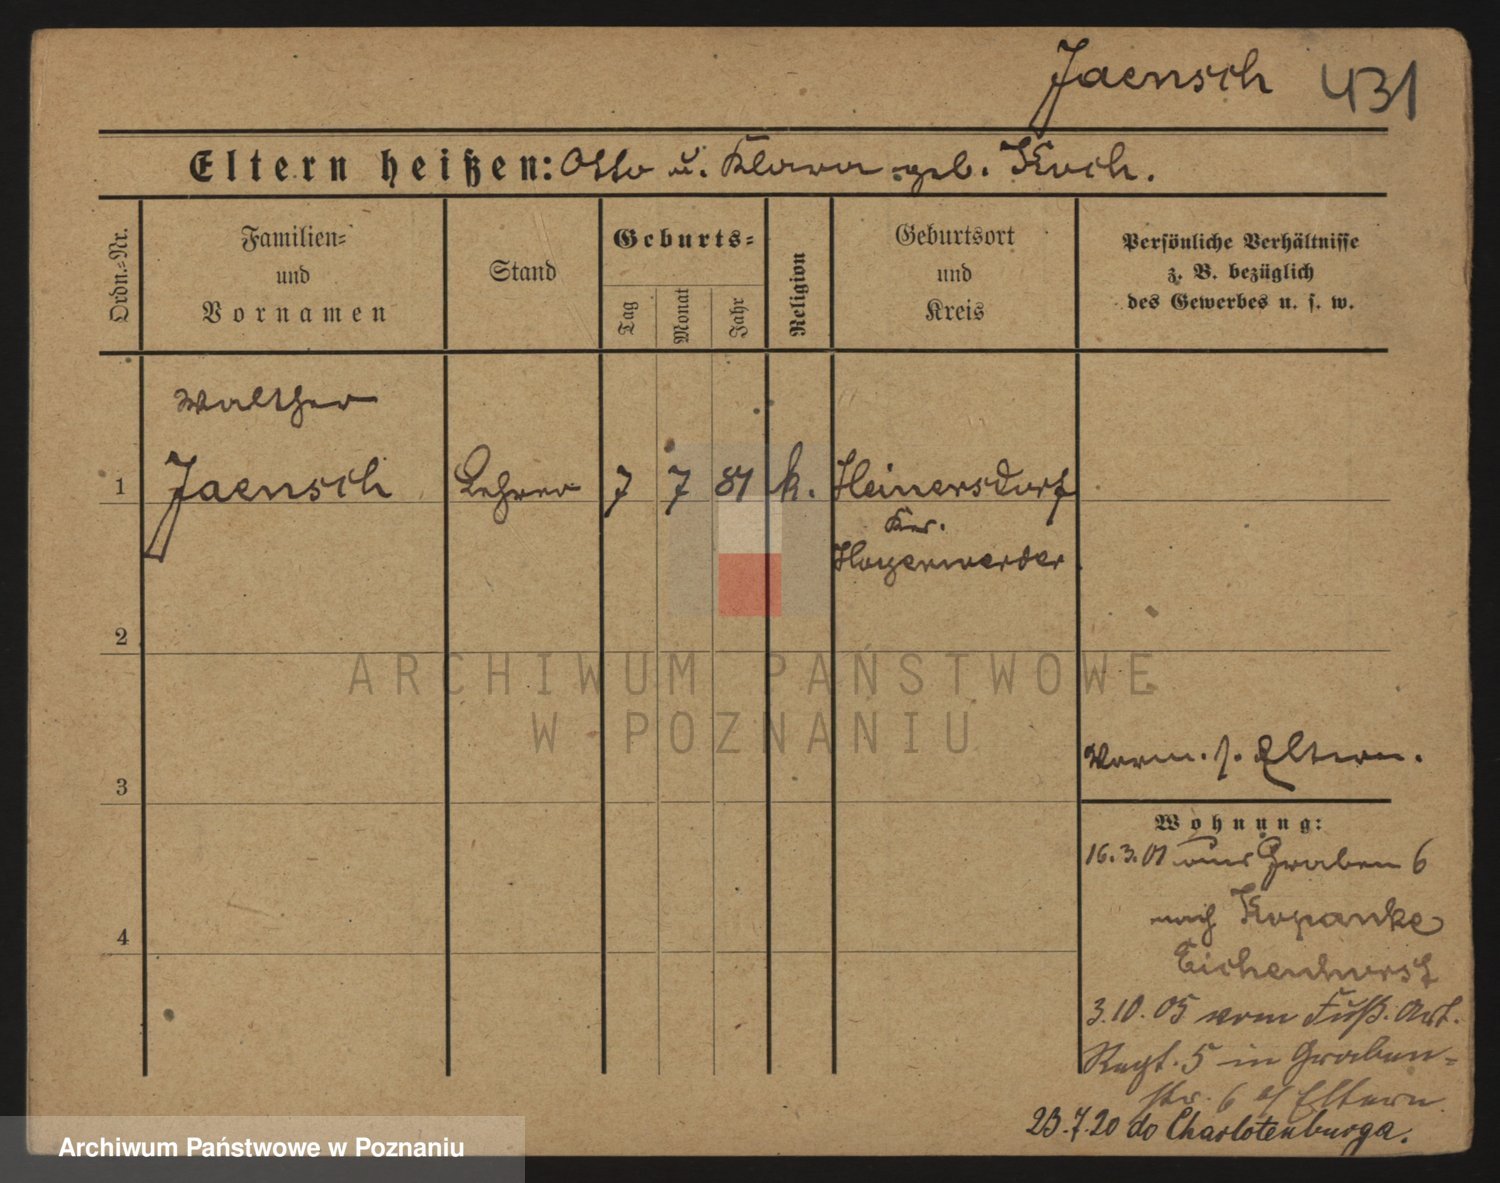 Jaensch 431
Eltern heißen: Otto u. Klara geb. Koch.
Ordn.=Nr.
Familien=
und
Vornamen
Stand
Geburts=
Tag
Monat
Jahr
Religion
Geburtsort
und
Kreis
Persönliche Verhältnisse
z. B. bezüglich
des Gewerbes u. s. w.
Walther
1 Jaensch Lehrer 7 7 81 k. Heinersdorf
Kr.
Hoyerwerder
2
ARCHIWUM PAŃSTWOWE
W POZNANIU
Vorm. s. Eltern.
3
Wohnung:
16.3.01 aus Graben 6
nach Kopanke
4
Eichenhorst
3.10.05 vom Fuß. Art.
Regt. 5 in Graben=
str. 6 b/ Eltern
23.7.20 do Charlotenburga.
Archiwum Państwowe w Poznaniu